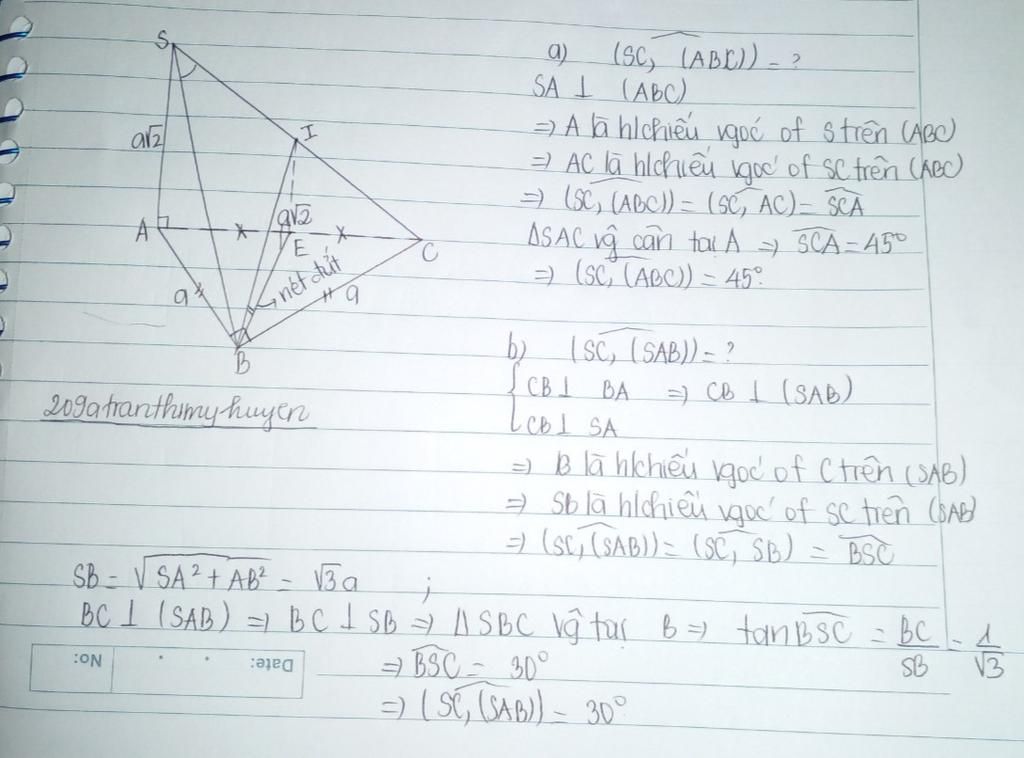 S
I
a√2
A
a√2
E
C
a
nét đứt
a
B
209atranthimyhuyen
a) (SC, (ABC)) = ?
SA ⊥ (ABC)
⇒ A là h/chiếu vgóc of S trên (ABC)
⇒ AC là h/chiếu vgóc of SC trên (ABC)
⇒ (SC, (ABC)) = (SC, AC) = SCA
ΔSAC vg cân tại A ⇒ SCA = 45°
⇒ (SC, (ABC)) = 45°.
b) (SC, (SAB)) = ?
{ CB ⊥ BA ⇒ CB ⊥ (SAB)
CB ⊥ SA
⇒ B là h/chiếu vgóc of C trên (SAB)
⇒ SB là h/chiếu vgóc of SC trên (SAB)
⇒ (SC, (SAB)) = (SC, SB) = BSC
SB = √SA² + AB² = √3a ;
BC ⊥ (SAB) ⇒ BC ⊥ SB ⇒ Δ SBC vg tại B ⇒ tan BSC = BC/SB = 1/√3
⇒ BSC = 30°
⇒ (SC, (SAB)) = 30°
No:
Date: